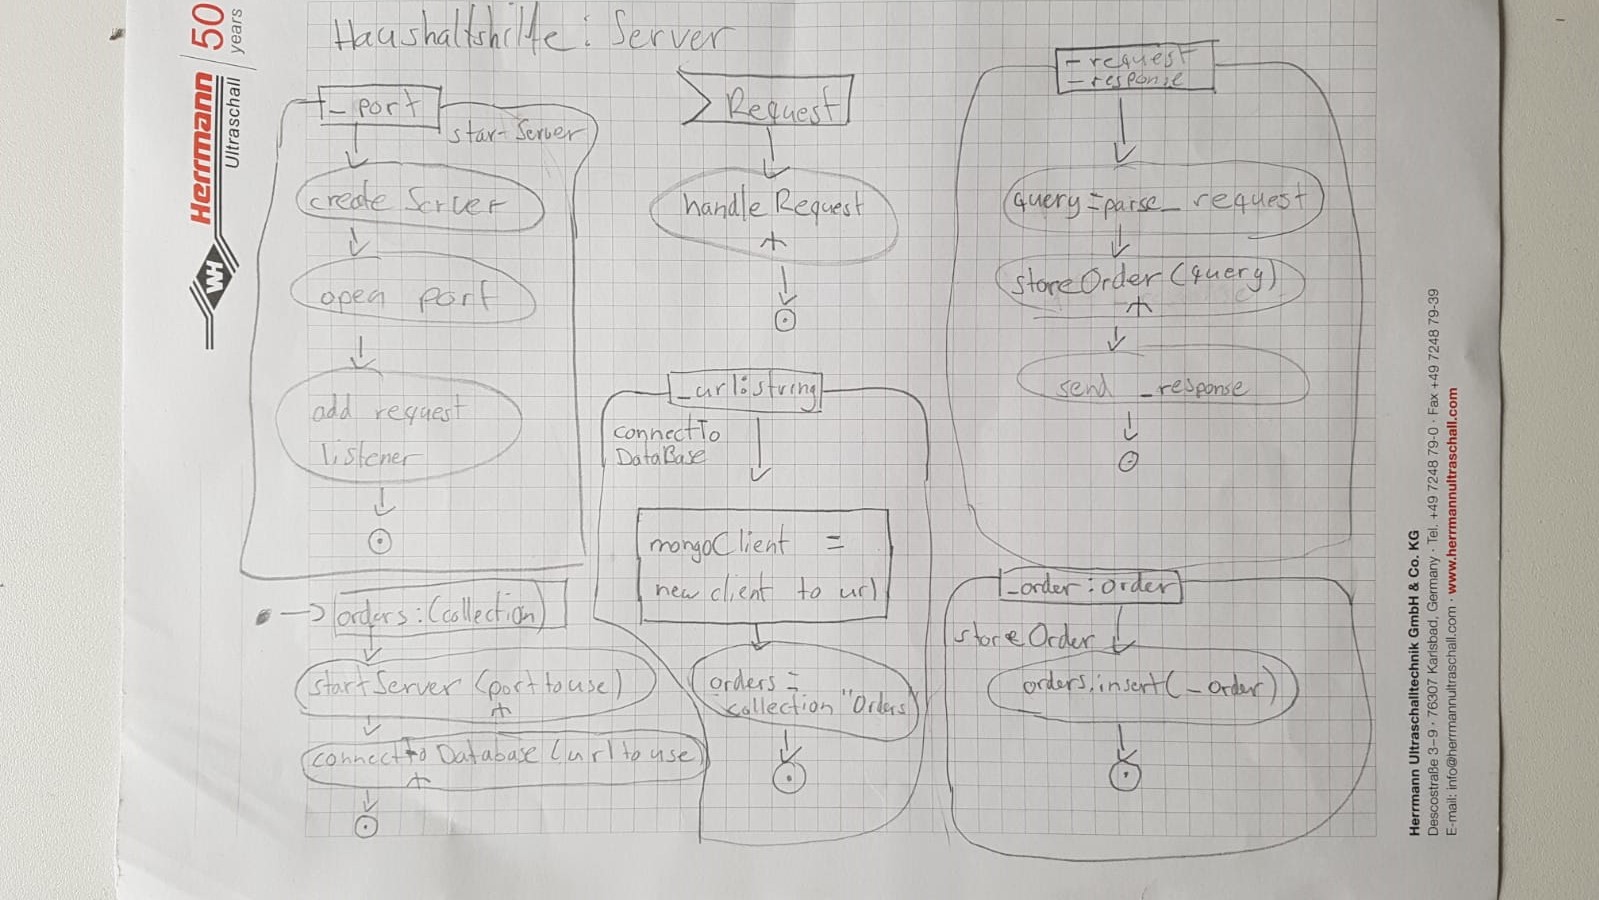 Haushaltshilfe: Server
_ port
star- Server
create Server
open port
add request
listener
orders: (collection)
startServer (port to use)
connectto Database (url to use
Request
handle Request
_url:string
connectTo
DataBase
mongoClient =
new client to url
orders =
collection "Orders
- request
- response
query=parse_ request
storeOrder (query)
send _response
_order: order
store Order
orders.insert(_order)
Herrmann
Ultraschall
50
years
WH
Herrmann Ultraschalltechnik GmbH & Co. KG
Descostraße 3–9 · 76307 Karlsbad, Germany · Tel. +49 7248 79-0 · Fax +49 7248 79-39
E-mail: info@herrmannultraschall.com · www.herrmannultraschall.com